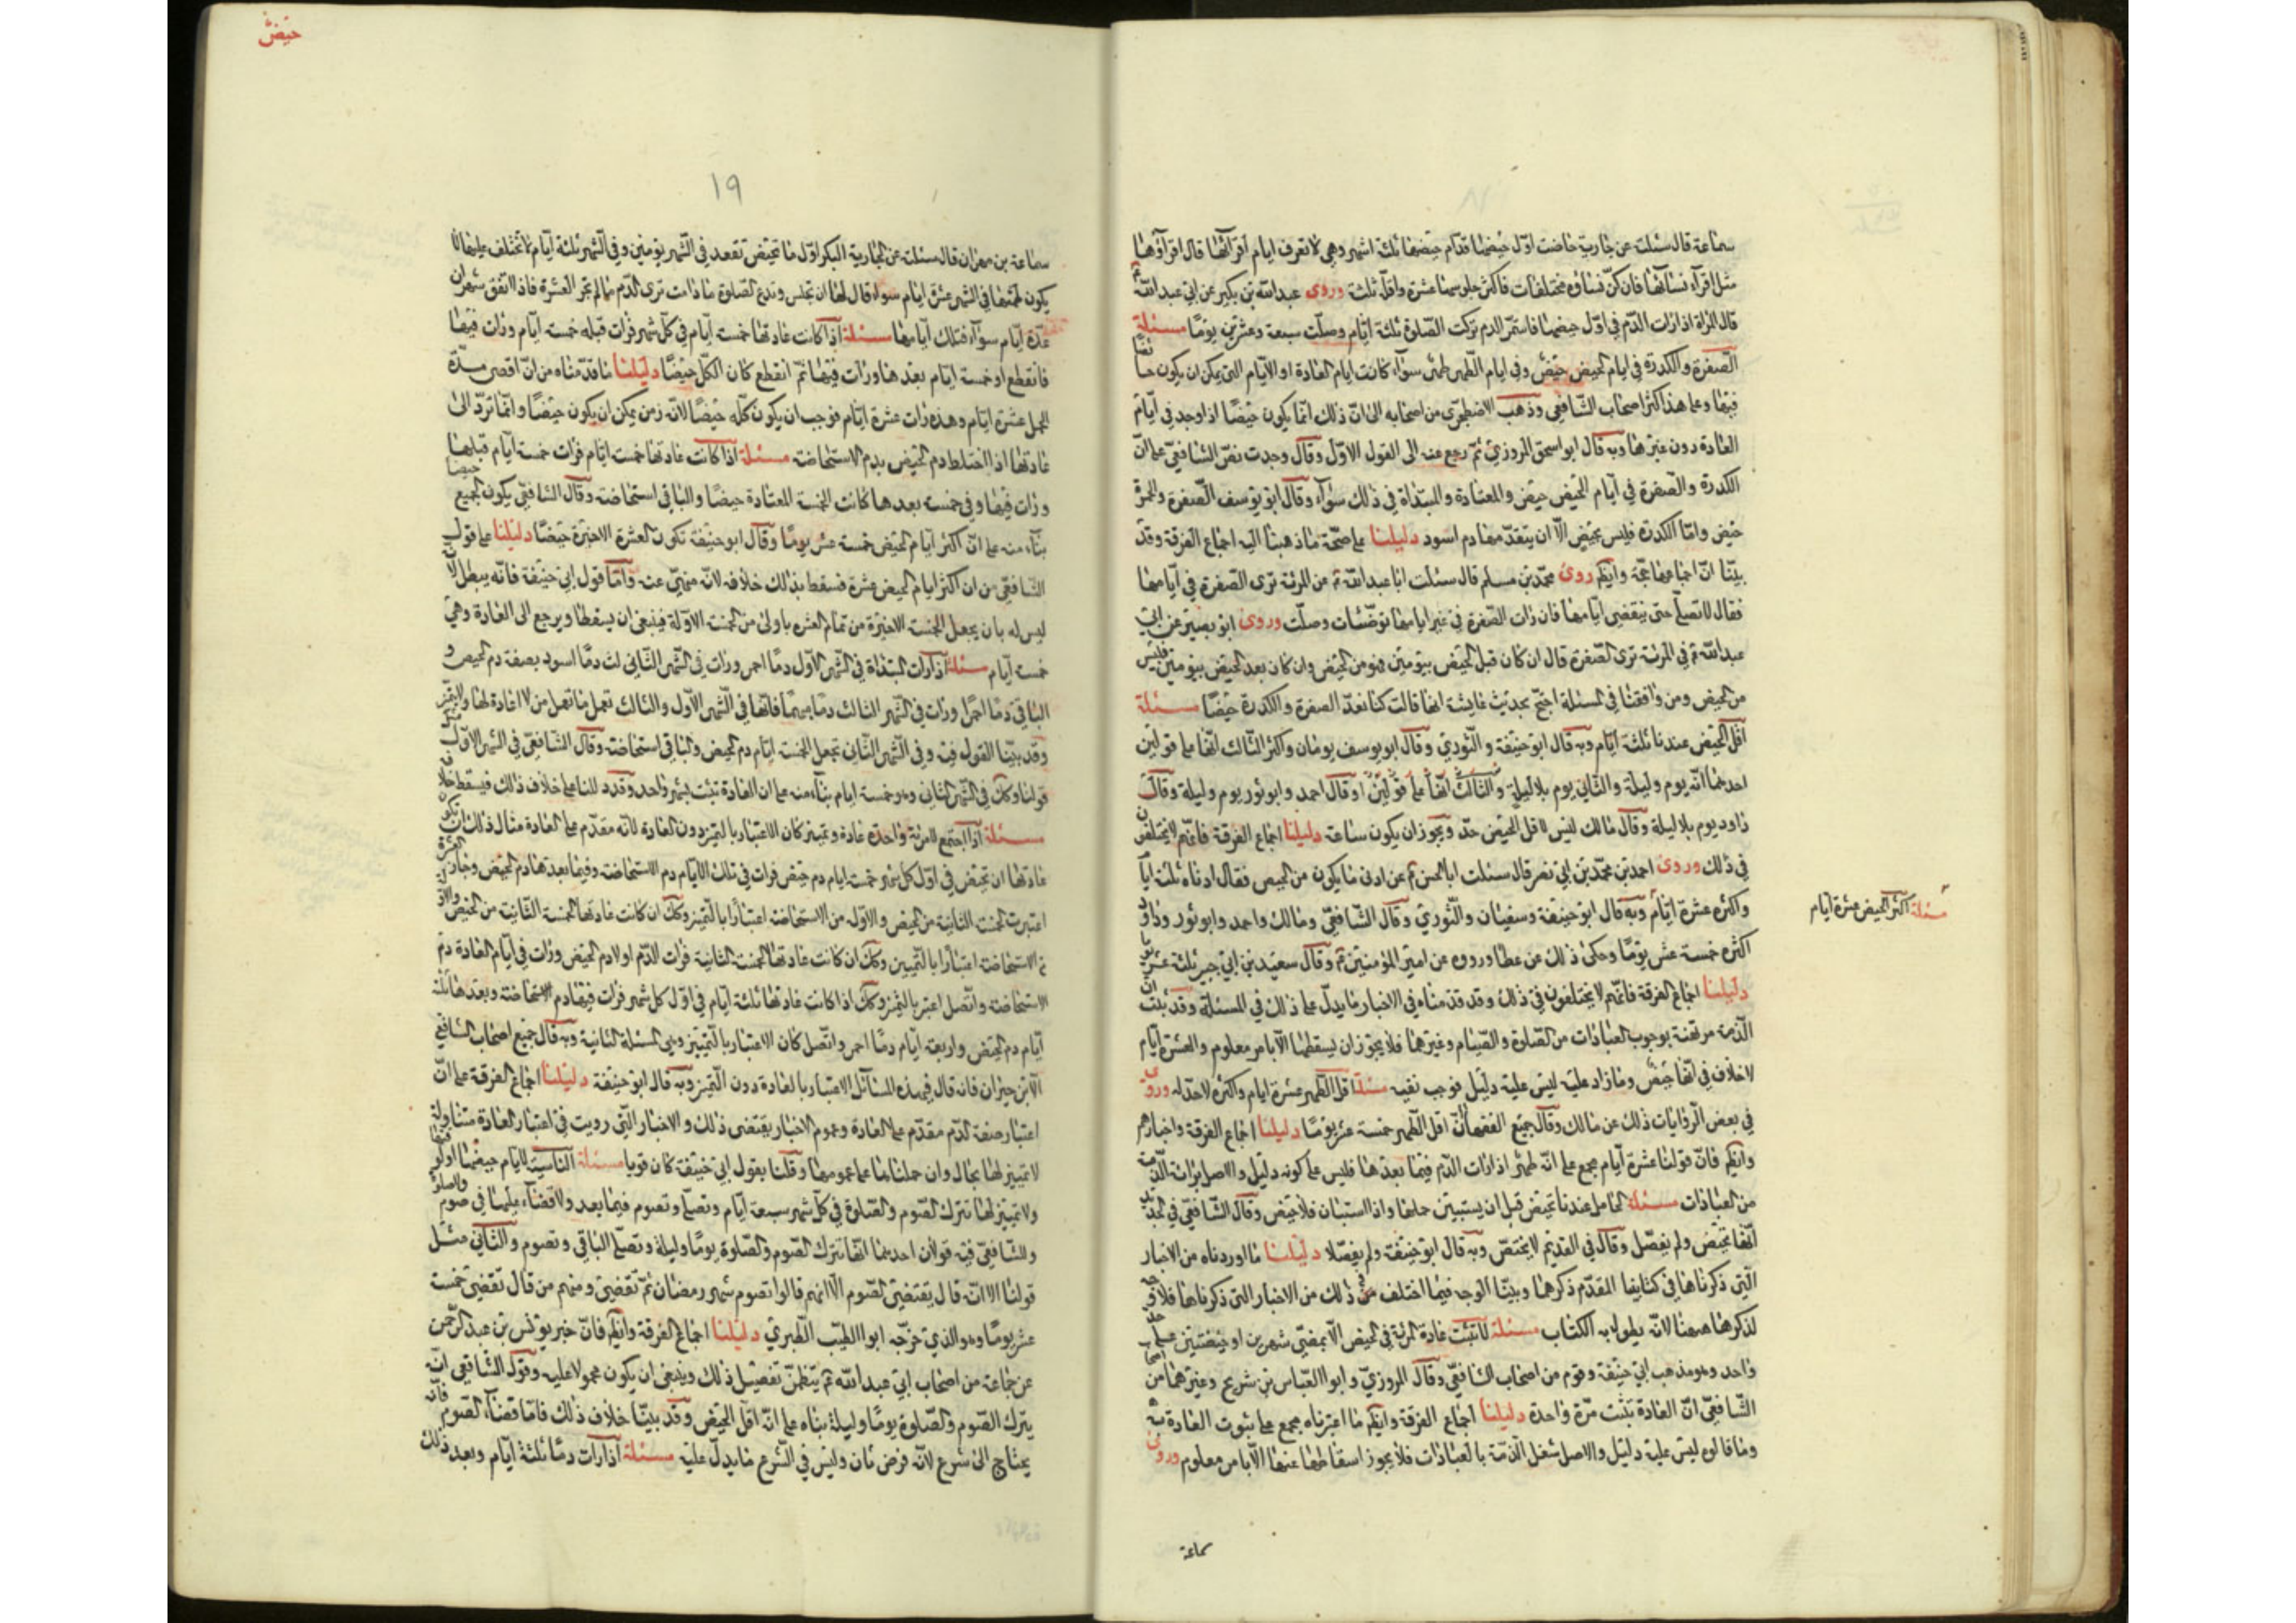 سماعة قال سئلت عن جارية حاضت اوّل حيضها فدام حيضها ثلثة اشهر وهي لا تعرف ايام اقرائها قال اقراؤها
مثل اقرآء نسائها فان كنّ نساؤه مختلفات فاكثر جلوسها عشرة واقلّه ثلثة وروى عبدالله بن بكير عن ابي عبدالله ع
قال المراة اذا رات الدّم في اوّل حيضها فاستمرّ الدم تركت الصّلوة ثلثة ايّام وصلّت سبعة وعشرين يومًا مسئلة
الصفرة والكدرة في ايام الحيض حيضٌ وفي ايام الطّهر طهرٌ سوآء كانت ايام العادة او الأيام التي يمكن ان يكون حايضًا
فيها وعلى هذا اكثر اصحاب الشّافعي وذهب الاصطخري من اصحابه الى انّ ذلك انّما يكون حيضًا اذا وجد في ايّام
العادة دون غيرها وبه قال ابو اسحق المروزيّ ثمّ رجع عنه الى القول الأوّل وقال وجدت نصّ الشافعيّ على انّ
الكدرة والصّفرة في ايام الحيض حيض والمعتادة والمبتداة في ذلك سوآء وقال ابو يوسف الصّفرة والحمرة
حيض وامّا الكدرة فليس بحيض الّا ان يتقدّمها دم اسود دليلنا على صحّة ما ذهبنا اليه اجماع الفرقة وقد
بيّنّا انّ اجماعها حجّة وايضًا روى محمّد بن مسلم قال سئلت ابا عبدالله ع عن المرئة ترى الصّفرة في ايّامها
فقال لا تصلّي حتى ينقضي ايّامها فان رات الصّفرة في غير ايامها توضّئات وصلّت وروى ابو بصير عن ابي
عبدالله ع في المرئة ترى الصّفرة قال ان كان قبل الحيض بيومين فهو من الحيض وان كان بعد الحيض بيومين فليس
من الحيض ومن وافقنا في المسئلة احتجّ بحديث عايشة انها قالت كنا نعدّ الصفرة والكدرة حيضًا مسئلة
اقلّ الحيض عندنا ثلثة ايّام وبه قال ابو حنيفة والثوريّ وقال ابو يوسف يومان واكثر الثّالث للشافعي على قولين
احدهما انّه يوم وليلة والثّاني يوم بلا ليلة وقال احمد وابو ثور يوم وليلة وقال
داود يوم بلا ليلة وقال مالك ليس لاقلّ الحيض حدّ ويجوز ان يكون ساعة دليلنا اجماع الفرقة فانّهم لا يختلفون
في ذلك وروى احمد بن محمّد بن ابي نصر قال سئلت ابا الحسن ع عن ادنى ما يكون من الحيض فقال ادناه ثلثة ايّام
واكثره عشرة ايّام وبه قال ابو حنيفة وسفيان والثّوري وقال الشّافعيّ ومالك واحمد وابو ثور وداود
اكثره خمسة عشر يومًا وحكى ذلك عن عطا ورووه عن امير المؤمنين ع وقال سعيد بن ابي جبير ثلثة عشر يومًا
دليلنا اجماع الفرقة فانّهم لا يختلفون في ذلك وقد قدّمناه في الاخبار ما يدلّ على ذلك في المسئلة وقد ثبت انّ
الذّمة مرتهنة بوجوب العبادات من الصّلوة والصّيام وغيرهما فلا يجوز ان يسقطها الّا بامر معلوم والعشرة ايّام
لا خلاف في انّها حيض وما زاد عليه ليس عليه دليل فوجب نفيه مسئلة اقلّ الطّهر عشرة ايّام واكثره لا حدّ له وروى
في بعض الرّوايات ذلك عن مالك وقال جميع الفقهاء انّ اقل الطّهر خمسة عشر يومًا دليلنا اجماع الفرقة واخبارهم
وايضًا فانّ قولنا عشرة ايّام مجمع على انّه طهرٌ اذا رات الدّم فيما بعدها فليس على كونه دليل والاصل براءة الذّمة
من العبادات مسئلة الحامل عندنا تحيض قبل ان يستبين حملها واذا استبان فلا حيض وقال الشّافعيّ في الجديد
انّها تحيض ولم يفصّل وقال في القديم لا تحيض وبه قال ابو حنيفة ولم يفصّلا دليلنا ما اوردناه من الاخبار
التي ذكرناها في كتابينا المقدّم ذكرهما وبيّنّا الوجه فيما اختلف من ذلك من الاخبار التي ذكرناها فلا وجه
لذكرها هيهنا لانّه يطول به الكتاب مسئلة لا تثبت عادة المرئة في الحيض الّا بمضيّ شهرين او حيضتين على حدّ
واحد وهو مذهب ابي حنيفة وقوم من اصحاب الشافعيّ وقال المروزيّ وابو العبّاس بن شريح وغيرهما من اصحاب
الشّافعيّ انّ العادة تثبت مرّة واحدة دليلنا اجماع الفرقة وايضًا ما اعتبرناه مجمع على ثبوت العادة به
وما قالوه ليس عليه دليل والاصل شغل الذّمة بالعبادات فلا يجوز اسقاطها عنها الّا بامر معلوم وروى
سماعة
مسئلة اكثر الحيض عشرة ايّام
حيض
١٩
سماعة بن مهران قال سئلته عن الجارية البكر اوّل ما تحيض تقعد في الشّهر يومين وفي الشّهر ثلثة ايّام تختلف عليها لا
يكون طمثها في الشهر عدّة ايام سواء قال لها ان تجلس وتدع الصّلوة ما دامت ترى الدّم ما لم تجز العشرة فاذا اتّفق شهران
عدّة ايّام سوآء فتلك ايّامها مسئلة اذا كانت عادتها خمسة ايّام في كلّ شهر فرات قبله خمسة ايّام ورات فيها
فانقطع او خمسة ايّام بعدها ورات فيها ثمّ انقطع كان الكلّ حيضًا دليلنا ما قدّمناه من انّ اقصى مدّة
الحيض عشرة ايّام وهذه رات عشرة ايّام فوجب ان يكون كلّه حيضًا لانّه زمن يمكن ان يكون حيضًا وانّما تردّ الى
عادتها اذا اختلط دم الحيض بدم الاستحاضة مسئلة اذا كانت عادتها خمسة ايّام فرات خمسة ايّام قبلها
ورات فيها وفي خمسة بعدها كانت الخمسة المعتادة حيضًا والباقي استحاضة وقال الشافعيّ يكون الجميع حيضا
بنآء منه على انّ اكثر ايّام الحيض خمسة عشر يومًا وقال ابو حنيفة تكون العشرة الاخيرة حيضًا دليلنا على قول
الشّافعيّ من ان اكثر ايام الحيض عشرة فسقط بذلك خلافه لانّه مبنيّ عنه وامّا قول ابي حنيفة فانّه يبطل لانّ
ليس له بان يجعل الخمسة الاخيرة من تمام العشرة باولى من الخمسة الاوّلة فينبغي ان يسقطا ويرجع الى العادة وهي
خمسة ايّام مسئلة اذا رات المبتداة في الشّهر الأوّل دمًا احمر ورات في الشّهر الثّاني ثلث دمًا اسود بصفة دم الحيض و
الباقي دمًا احمر ورات في الشّهر الثالث دمًا مبهمًا فانّها في الشّهر الأوّل والثالث تعمل ما تعمل من لا عادة لها ولا تميّز
وقد بيّنّا القول فيه وفي الشّهر الثّاني تجعل الخمسة ايّام دم الحيض والباقي استحاضة وقال الشّافعيّ في الشهر الأوّل
قولنا وكك في الشّهر الثاني وهو خمسة ايام بنآء منه على ان العادة تثبت بشهر واحد وقد دللنا على خلاف ذلك فيسقط خلافه
مسئلة اذا اجتمع لامرئة واحدة عادة وتمييز كان الاعتبار بالتميز دون العادة لانّه مقدّم على العادة مثال ذلك ان تكون
عادتها ان تحيض في اوّل كل شهر خمسة ايام دم حيض فرات في تلك الأيام دم الاستحاضة وفيما بعدها دم الحيض وجاز العشرة
اعتبرت الخمسة الثانية من الحيض والاوّلة من الاستحاضة اعتبارًا بالتّميز وكك ان كانت عادتها الخمسة الثّانية من الحيض
الاستحاضة اعتبارًا بالتّمييز وكك ان كانت عادتها الخمسة الثانية فرات الدّم اوّلا دم الحيض ورات في ايّام العادة دم
الاستحاضة واتّصل اعتبر بالتّميز وكك اذا كانت عادتها ثلثة ايّام في اوّل كل شهر فرات فيها دم الاستحاضة وبعدها ثلثة
ايّام دم الحيض واربعة ايّام دمًا احمر واتّصل كان الاعتبار بالتّمييز وهي المسئلة الثانية وبه قال جميع اصحاب الشافعي
الّا بن خيران فانه قال في هذه المسائل الاعتبار بالعادة دون التّميز وبه قال ابو حنيفة دليلنا اجماع الفرقة على انّ
اعتبار صفة الدّم مقدّم على العادة وعموم الاخبار يقتضي ذلك والاخبار الّتي رويت في اعتبار العادة متناولة
لا تمييز لها بحال وان حملناها على عمومها وقلنا بقول ابي حنيفة كان قويا مسئلة النّاسية لايام حيضها او لوقتها
ولا تمييز لها تترك الصّوم والصّلوة في كلّ شهر سبعة ايّام وتصلّي وتصوم فيما بعد ولا قضآء عليها في صوم والصلوة
وللشّافعيّ فيه قولان احدهما انّها تترك الصّوم والصّلوة يومًا وليلة وتصلّي الباقي وتصوم والثّاني مثل
قولنا الا انّه قال يقتضي الصّوم الّا انّهم قالوا تصوم شهر رمضان ثمّ تقضي ومنهم من قال تقضي خمسة
عشر يومًا وهو الذي خرّجه ابو الطيّب الطّبري دليلنا اجماع الفرقة وايضًا فانّ خبر يونس بن عبد الرّحمن
عن جماعة من اصحاب ابي عبدالله ع يتضمّن تفصيل ذلك وينبغي ان يكون محمولا عليه وقول الشّافعي انّه
يترك الصّوم والصّلوة يومًا وليلة بناه على انّه اقلّ الحيض وقد بيّنّا خلاف ذلك فامّا قضآء الصّوم فانّه
يحتاج الى شرع لانّه فرض ثان وليس في الشّرع ما يدلّ عليه مسئلة اذا رات دمًا ثلثة ايّام وبعد ذلك